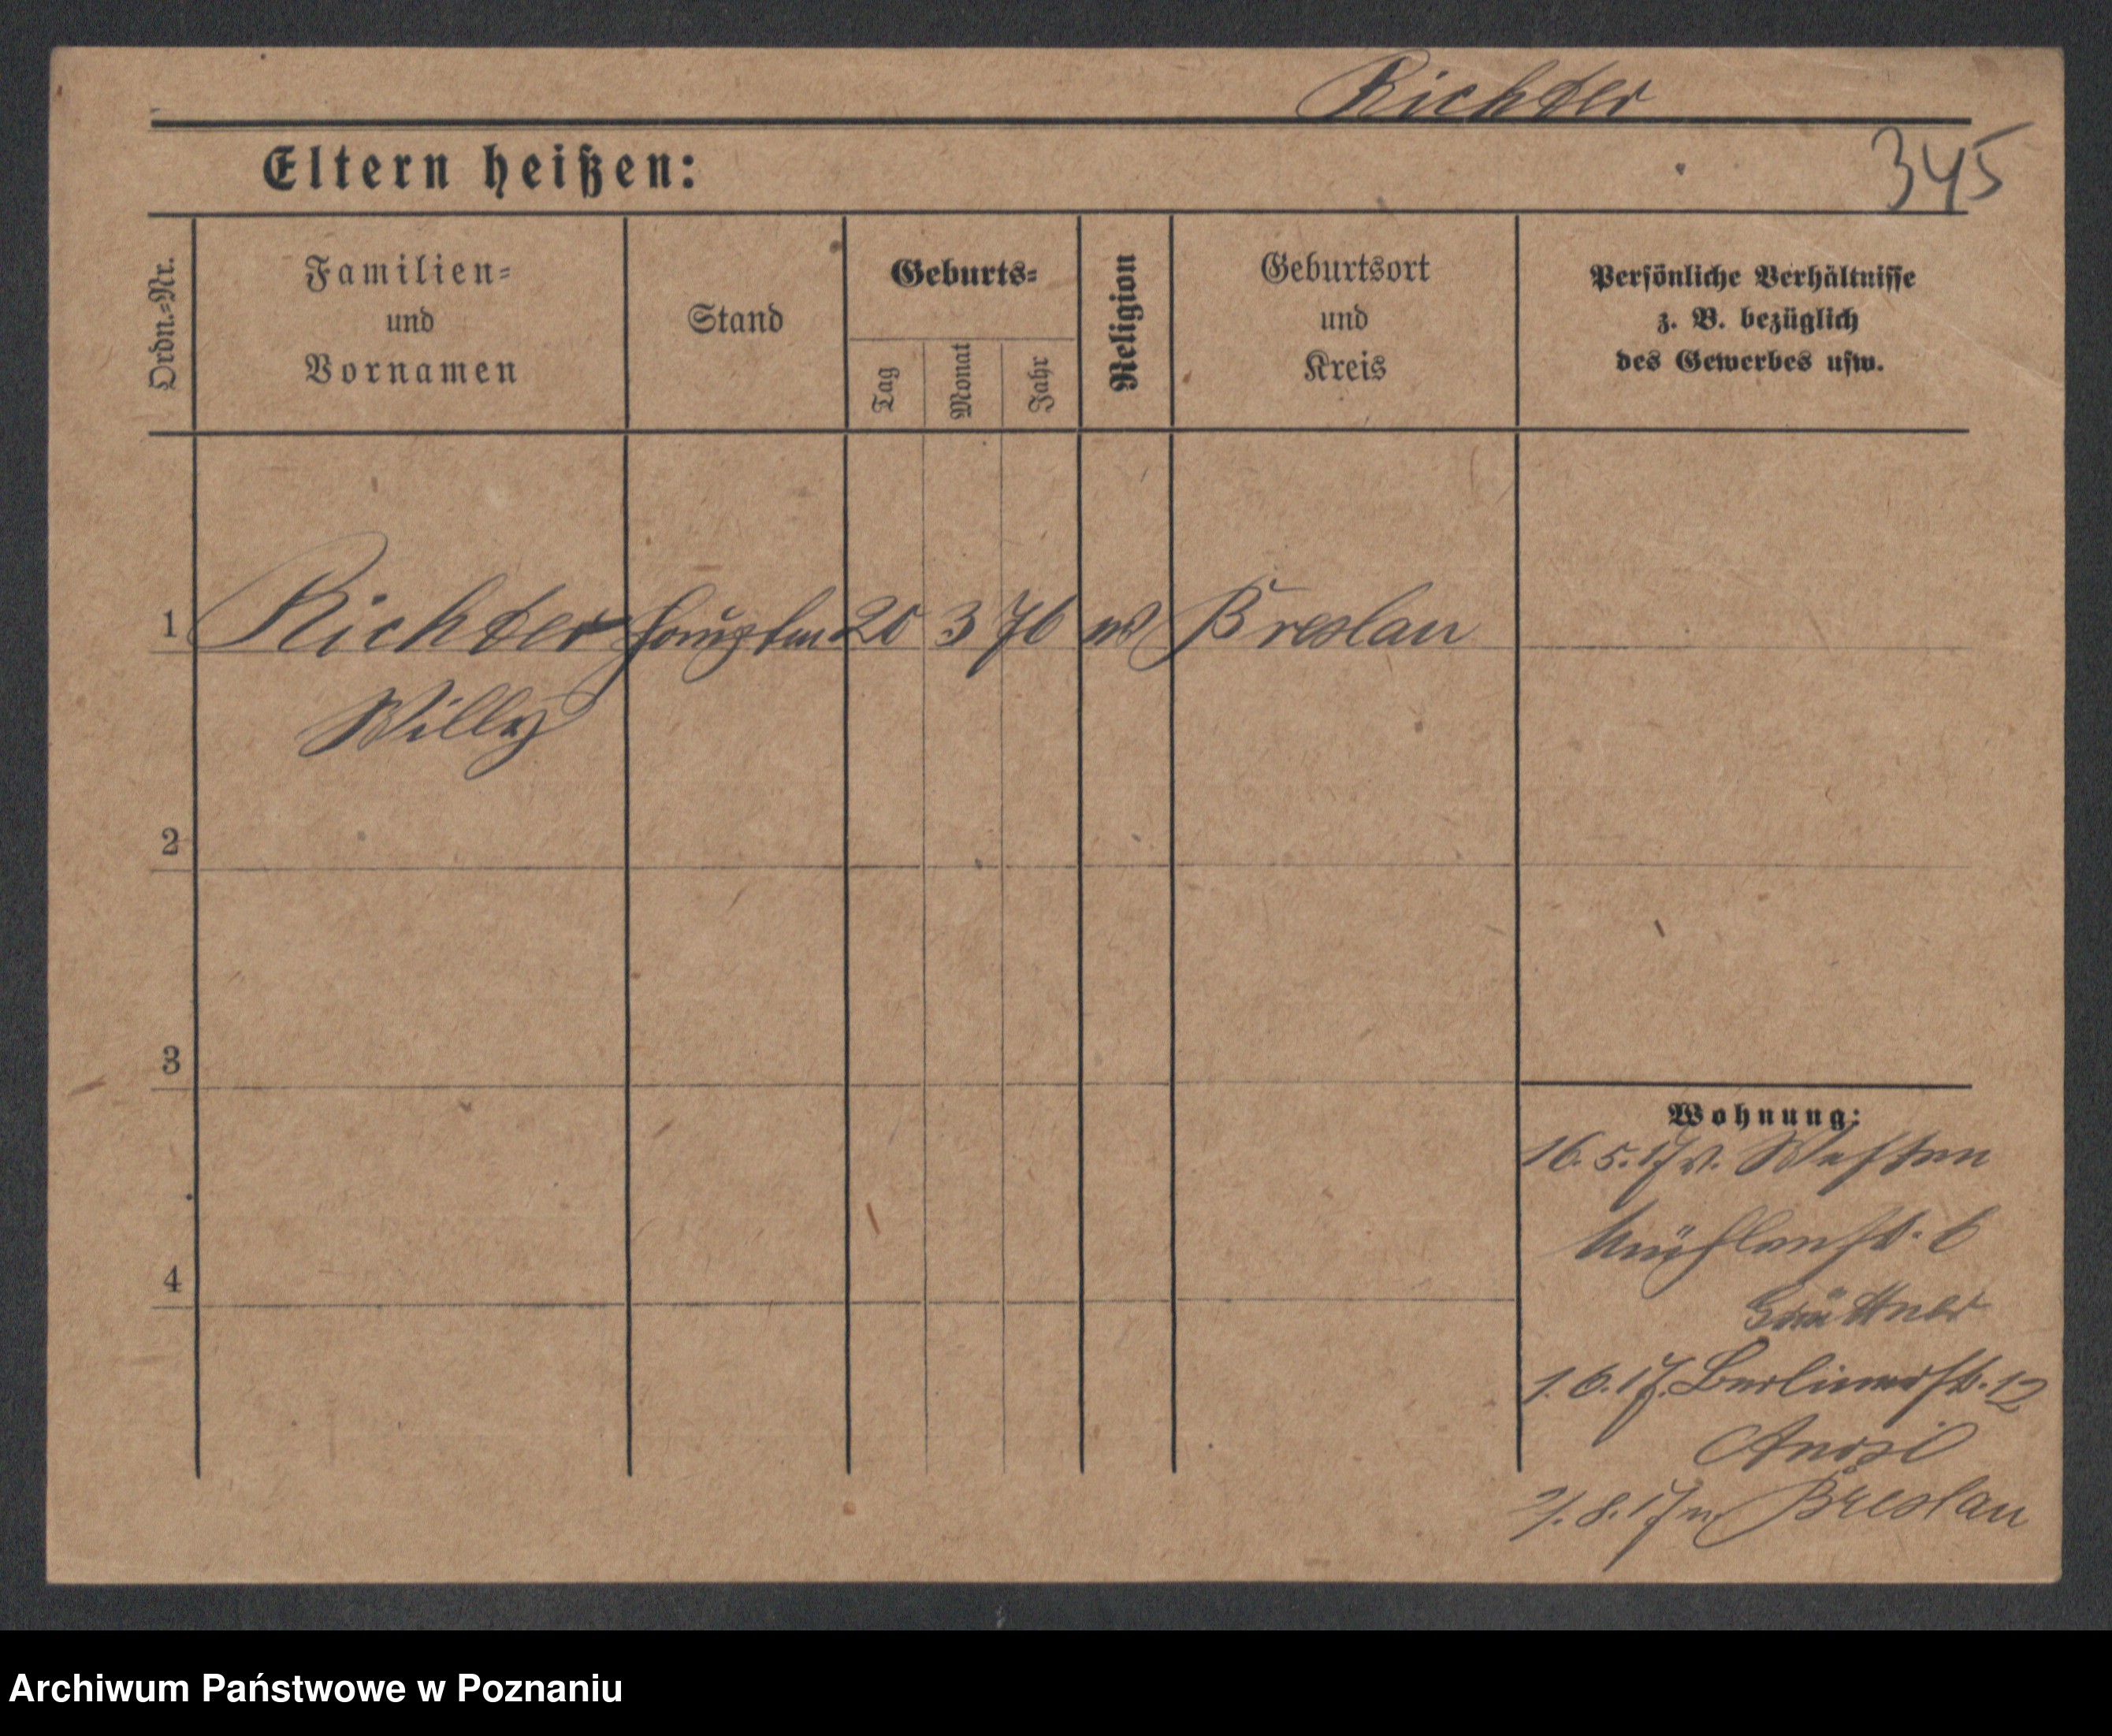 Richter
345
Eltern heißen:
Ordn.-Nr.
Familien-
und
Vornamen
Stand
Geburts-
Tag
Monat
Jahr
Religion
Geburtsort
und
Kreis
Persönliche Verhältnisse
z. B. bezüglich
des Gewerbes usw.
1 Richter Hauptm 20 3 76 Breslau
Willy
2
3
4
Wohnung:
16. 5. 17 v. Westen
Mühlenstr. 6
Grüttner
1. 6. 17. Berlinerstr. 12
8. 17 n Breslau
Archiwum Państwowe w Poznaniu